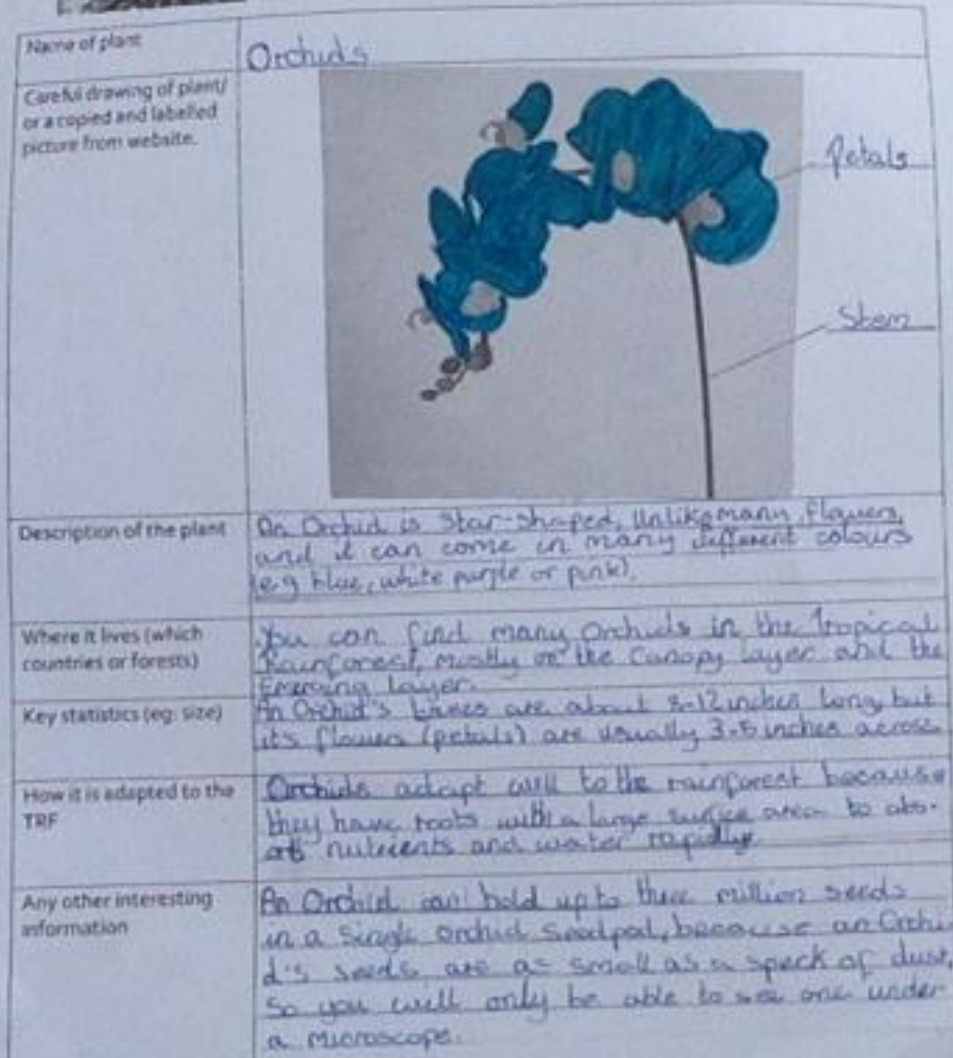 Name of plant
Orchids
Careful drawing of plant/
or a copied and labelled
picture from website.
Petals
Stem
Description of the plant
An Orchid is Star-shaped, Unlike many flowers,
and it can come in many different colours
(e.g blue, white purple or pink).
Where it lives (which
countries or forests)
You can find many Orchids in the Tropical
Rainforest, mostly on the Canopy layer and the
Emerging Layer.
Key statistics (eg: size)
An Orchid's are about 8-12 inches long, but
its flowers (petals) are usually 3-5 inches across
How it is adapted to the
TRF
Orchids adapt well to the rainforest because
they have roots with a large surface area to abs-
orb nutrients and water rapidly
Any other interesting
information
An Orchid can hold up to three million seeds
in a single orchid seedpod, because an Orchi-
d's seeds are as small as a speck of dust,
so you will only be able to see one under
a microscope.